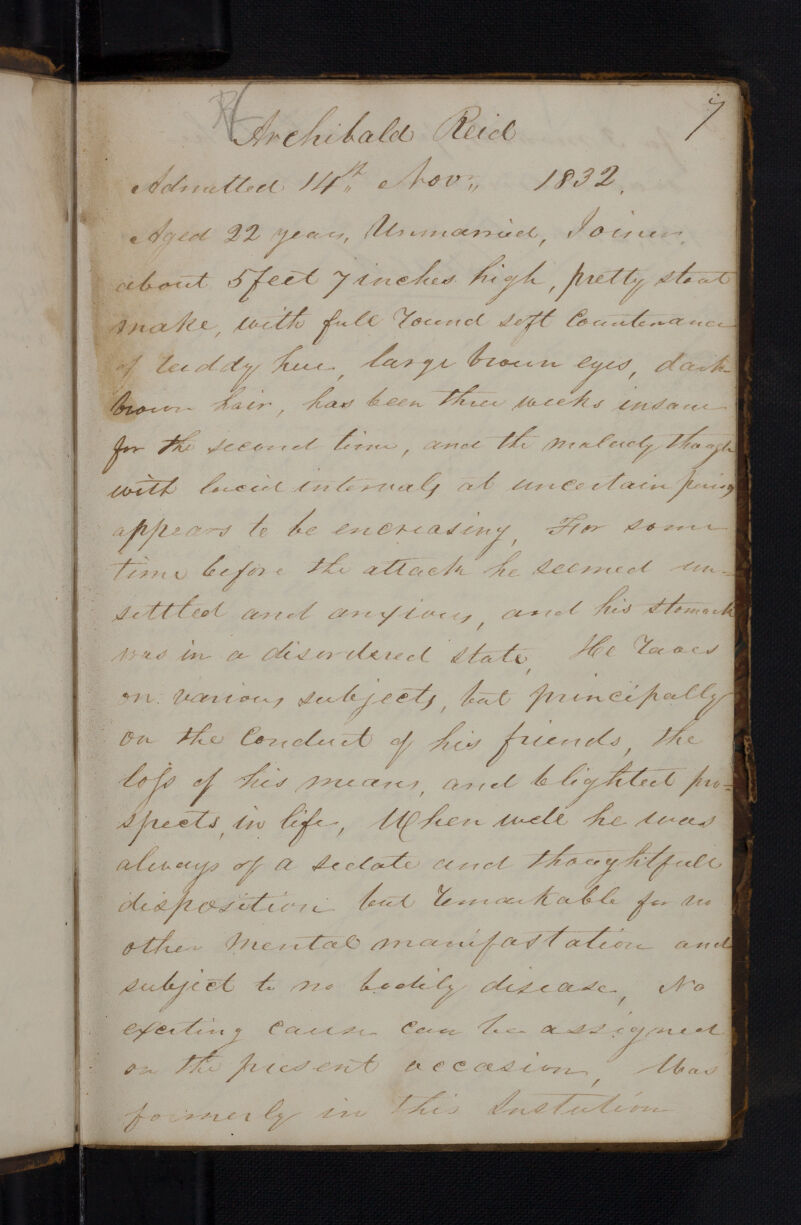 7
Archibald Reid
Admitted 14th Nov,, 1832.
Aged 22 years, Unmarried, Joiner,
about 5 feet 7 inches high, pretty stout
make, with full round soft Countenance
of ruddy hue, large brown eyes, dark
brown hair, has been three weeks insane
for the second time, and the malady though
with lucid intervals at uncertain
appears to be encreasing, For some
time before the attack he seemed un=
settled and anxious, and his stomach
was in a disordered state, He raves
on various subjects, but principally
on the Conduct of his friends, the
loss of his means, and blighted pro=
spects, in life, When well he was
always of a sedate and thoughtfull
disposition but remarkable for no
other mental manifastation and
subject to no bodily disease, No
exciting cause can be assigned
on the present occasion, Was
formerly in this Instution